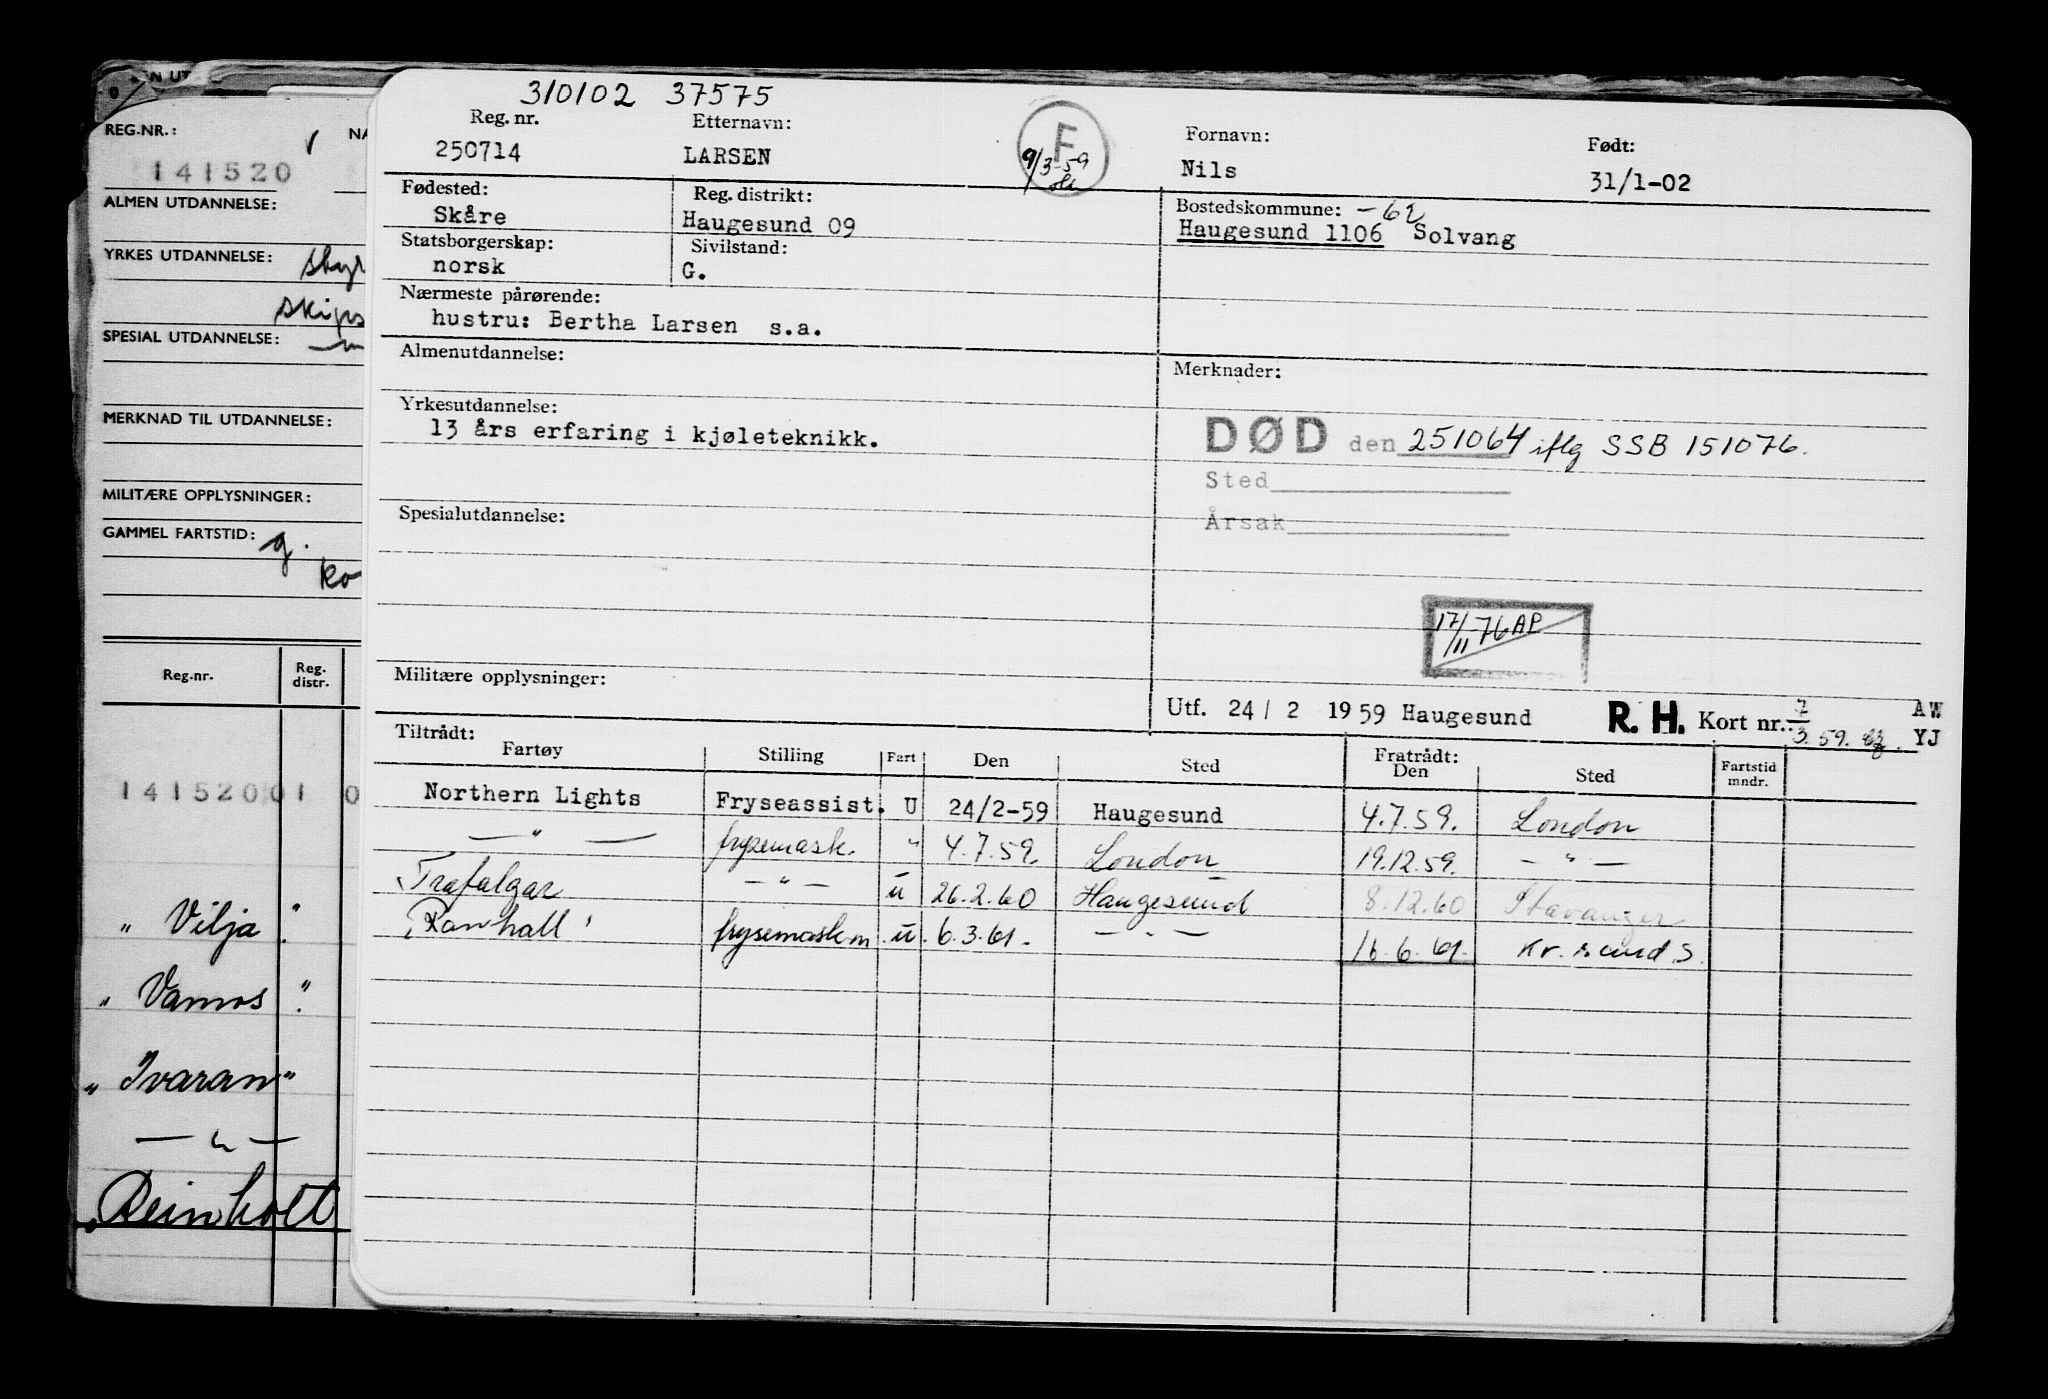 310102 37575
Reg. nr. Etternavn: Fornavn: Født:
250714 LARSEN Nils 31/1-02
F
9/3-59
Fødested: Reg. distrikt: Bostedskommune: -62
Skåre Haugesund 09 Haugesund 1106 Solvang
Statsborgerskap: Sivilstand:
norsk G.
Nærmeste pårørende:
hustru: Bertha Larsen s.a.
Almenutdannelse:
Merknader:
Yrkesutdannelse:
13 års erfaring i kjøleteknikk.
DØD den 251064 iflg SSB 151076.
Sted
Årsak
Spesialutdannelse:
17/11 76 AP
Militære opplysninger:
Utf. 24 / 2 1959 Haugesund R. H. Kort nr.: 7/3 59. AW
YJ
Tiltrådt: Fratrådt:
Fartøy Stilling Fart Den Sted Den Sted Fartstid mndr.
Northern Lights Fryseassist. U 24/2-59 Haugesund 4.7.59. London
— " — frysemask. " 4.7.59. London 19.12.59. — " —
Trafalgar — " — u 26.2.60 Haugesund 8.12.60 Stavanger
Ranhall frysemaskm. u. 6.3.61. — " — 16.6.61. Kr.sund.S.
EN UT
REG.NR.: NA
141520
ALMEN UTDANNELSE:
YRKES UTDANNELSE: styr
skips
SPESIAL UTDANNELSE:
MERKNAD TIL UTDANNELSE:
MILITÆRE OPPLYSNINGER:
GAMMEL FARTSTID: g.
ko
Reg.nr. Reg. distr.
141520 01 0
" Vilja "
" Vamos "
" Ivaran "
— " —
" Reinholt